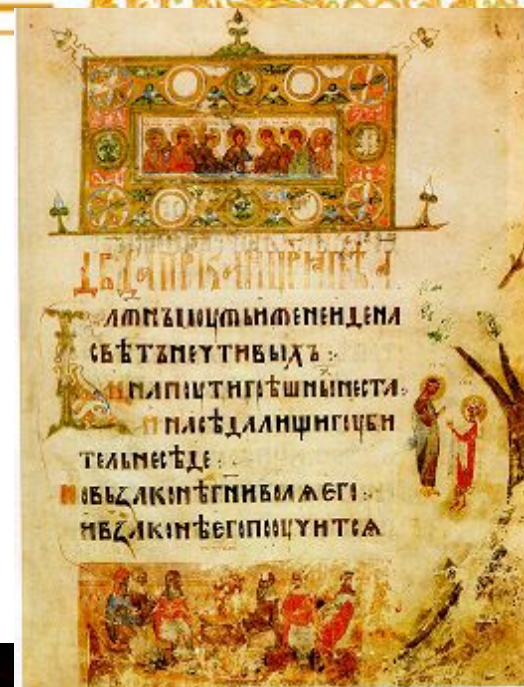 БЛ҃ЖНЪМОУЖЬИЖЕНЕИДЕНА
СВѢТЪНЕЧТИВЫХЪ:
ИНАПОУТИГРѢШНЫНЕСТА:
ИНАСѢДАЛИЩИГОУБИ
ТЕЛЬНЕСѢДЕ:
НОВЪЗАКОНѢГНИВОЛѦЕГО:
ИВЗАКОНѢЕГОПООУЧИТСѦ